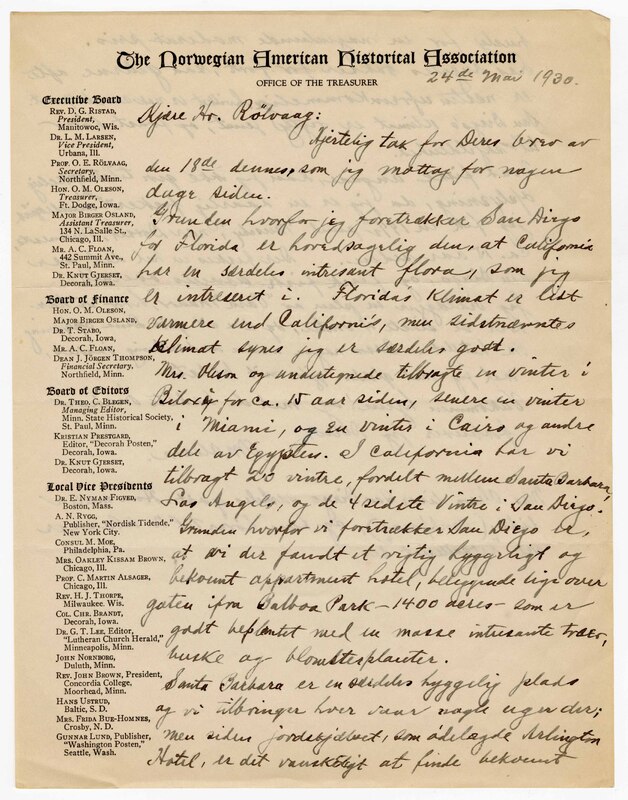 The Norwegian American Historical Association
OFFICE OF THE TREASURER
24de Mai 1930.
Executive Board
REV. D. G. RISTAD,
President,
Manitowoc, Wis.
DR. L. M. LARSEN,
Vice President,
Urbana, Ill.
PROF. O. E. RÖLVAAG,
Secretary,
Northfield, Minn.
HON. O. M. OLESON,
Treasurer,
Ft. Dodge, Iowa.
MAJOR BIRGER OSLAND,
Assistant Treasurer,
134 N. LaSalle St.,
Chicago, Ill.
MR. A. C. FLOAN,
442 Summit Ave.,
St. Paul, Minn.
DR. KNUT GJERSET,
Decorah, Iowa.
Board of Finance
HON. O. M. OLESON,
MAJOR BIRGER OSLAND,
DR. T. STABO,
Decorah, Iowa.
MR. A. C. FLOAN,
DEAN J. JÖRGEN THOMPSON,
Financial Secretary,
Northfield, Minn.
Board of Editors
DR. THEO. C. BLEGEN,
Managing Editor,
Minn. State Historical Society,
St. Paul, Minn.
KRISTIAN PRESTGARD,
Editor, "Decorah Posten,"
Decorah, Iowa.
DR. KNUT GJERSET,
Decorah, Iowa.
Local Vice Presidents
DR. E. NYMAN FIGVED,
Boston, Mass.
A. N. RYGG,
Publisher, "Nordisk Tidende,"
New York City.
CONSUL M. MOE,
Philadelphia, Pa.
MRS. OAKLEY KISSAM BROWN,
Chicago, Ill.
PROF. C. MARTIN ALSAGER,
Chicago, Ill.
REV. H. J. THORPE,
Milwaukee, Wis.
COL. CHR. BRANDT,
Decorah, Iowa.
DR. G. T. LEE, Editor,
"Lutheran Church Herald,"
Minneapolis, Minn.
JOHN NORBORG,
Duluth, Minn.
REV. JOHN BROWN, President,
Concordia College,
Moorhead, Minn.
HANS USTRUD,
Baltic, S. D.
MRS. FRIDA BUE-HOMNES,
Crosby, N. D.
GUNNAR LUND, Publisher,
"Washington Posten,"
Seattle, Wash.
Kjære Hr. Rölvaag:
Hjertelig tak for Deres brev av
den 18de dennes, som jeg mottog for nogen
dage siden.
Grunden hvorfor jeg foretrækker San Diego
for Florida er hovedsagelig den, at California
har en særdeles intresant flora, som jeg
er intreseret i. Florida's Klimat er litt
varmere end California's, men sidstnævntes
Klimat synes jeg er særdeles godt.
Mrs. Oleson og undertegnede tilbragte en vinter i
Biloxy for ca. 15 aar siden, senere en vinter
i Miami, og en vinter i Cairo og andre
dele av Egypten. I California har vi
tilbragt 20 vintre, fordelt mellem Santa Barbara,
Los Angels, og de 4 sidste Vintre i San Diego.
Grunden hvorfor vi foretrækker San Diego er,
at vi der fandt et rigtig hyggeligt og
bekvemt appartment hotel, beliggende lige over
gaten ifra Balboa Park – 1400 acres – som er
godt beplantet med en masse intresante træer,
buske og blomsterplanter.
Santa Barbara er en særdeles hyggelig plads
og vi tilbringer hver vaar nogle uger der;
men siden jordskjælvet, som ødelagde Arlington
Hotel, er det vanskeligt at finde bekvemt